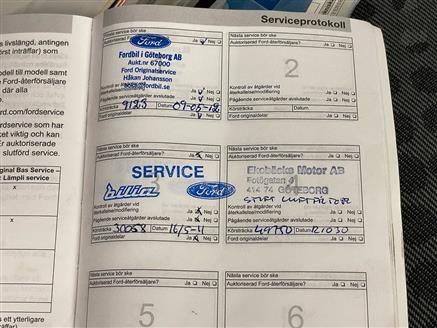 Serviceprotokoll
Nästa service bör ske
Auktoriserad F
Ja Nej
Ford
Fordbil i Göteborg AB
Aukt.nr 67000
Ford Originalservice
Håkan Johansson
Ja Nej
Ja Nej
Körsträcka 9123 Datum 09-05-12
Ford originaldelar Ja Nej
Nästa service bör ske
Auktoriserad Ford-återförsäljare? Ja Nej
2
Kontroll av åtgärder vid
återkallelse/modifiering Ja Nej
Pågående serviceåtgärder avslutade Ja Nej
Körsträcka Datum
Ford originaldelar Ja Nej
Nästa service bör ske
Auktoriserad Ford-återförsäljare? Ja Nej
SERVICE
Ford
Kontroll av åtgärder vid
återkallelse/modifiering Ja Nej
Pågående serviceåtgärder avslutade Ja Nej
Körsträcka 30058 Datum 16/5-11
Ford originaldelar Ja Nej
Nästa service bör ske
Auktoriserad Ford-återförsäljare? Ja Nej
Ekobäcks Motor AB
Fotögatan 4
414 74 GÖTEBORG
Kontroll av åtgärder vid
återkallelse/modifiering
Pågående serviceåtgärder avslutade Ja Nej
Körsträcka Datum 121030
Ford originaldelar Ja Nej
Nästa service bör ske
Auktoriserad Ford-återförsäljare? Ja Nej
5
Kontroll av åtgärder vid
Nästa service bör ske
Auktoriserad Ford-återförsäljare? Ja Nej
6
Kontroll av åtgärder vid
s livslängd, antingen
örst inträffar) som
dell till modell samt
Ford-återförsäljare
där alla
rd.com/fordservice
rdservice som har
ket viktig och kan
Er auktoriserade
slutförd service.
ginal Bas Service –
Lämpli service
x
x
s ett ytterligare